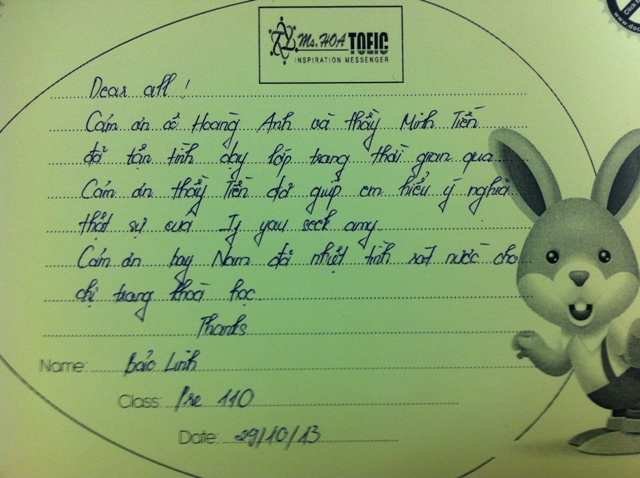 Ms. HOA TOEIC
INSPIRATION MESSENGER
Dear all !
Cảm ơn cô Hoàng Anh và thầy Minh Tiến
đã tận tình dạy lớp trong thời gian qua
Cảm ơn thầy Tiến đã giúp em hiểu ý nghĩa
thật sự của If you seek amy
Cảm ơn bạy Nam đã nhiệt tình rót nước cho
chị trong khoá học
Thanks
Name: Bảo Linh
Class: Pre 110
Date: 29/10/13